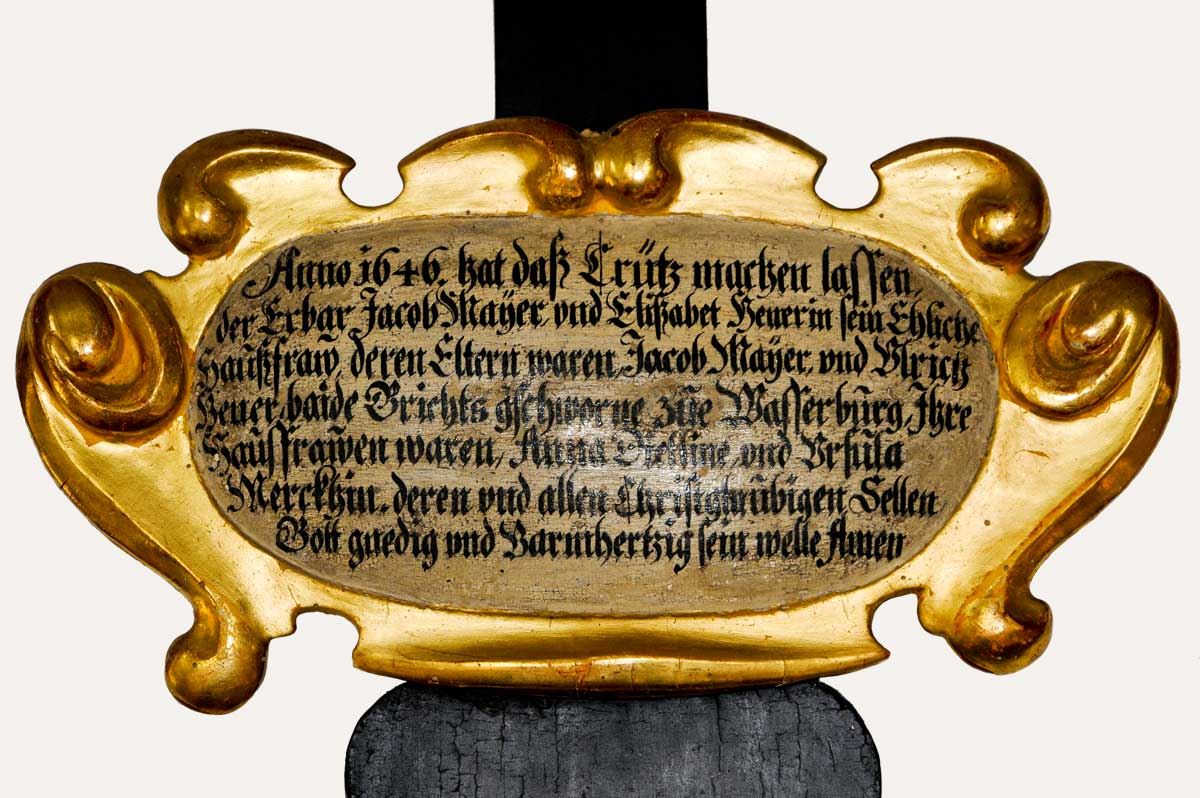 Anno 1646. hat daß Crütz machen lassen,
der Erbar Jacob Mayer, vnd Elißabet Heuerin sein Ehliche
Haußfraw, deren Eltern waren, Jacob Mayer, vnd Vlrich
Heuer, baide Grichts gschworne züe Wasserburg, Ihre
Hausfrawen waren, Anna vnd Vrsula
Merckhin. deren vnd allen Christglaubigen Sellen,
Gott gnedig vnd Barmhertzig sein welle Amen